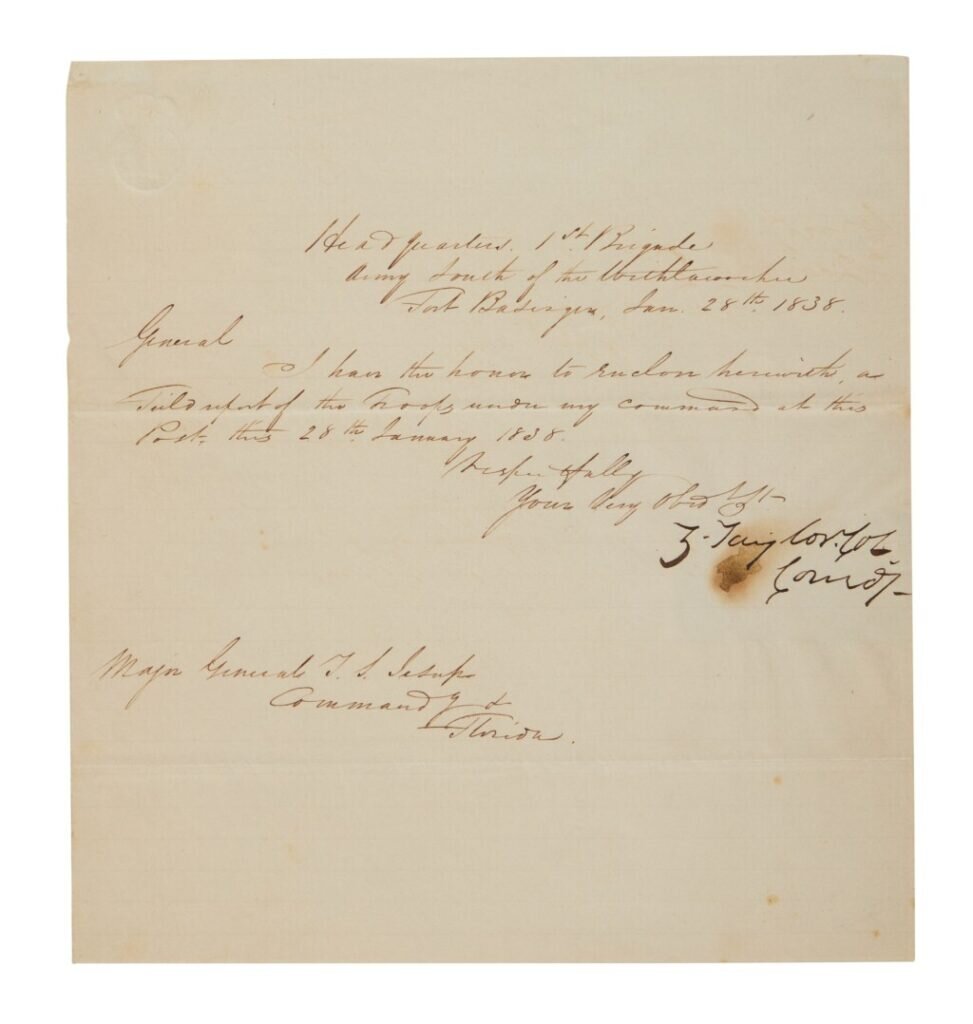 Head quarters. 1st. Brigade
Army South of the Withlacoochee
Fort Basinger, Jan. 28th. 1838.
General
I have the honor to enclose herewith, a
Field report of the Troops under my command at this
Post, this 28th January 1838.
Respectfully
Your Very Obed Sst
Z. Taylor. Col
Comdg
Major General T. S. Jesup
Command g &
Florida.